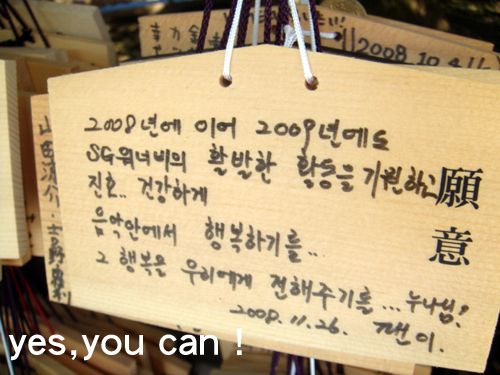 2008.10.4
願意
2008년에 이어 2009년에도
SG워너비의 활발한 활동을 기원하고
진호.. 건강하게
음악안에서 행복하기를...
그 행복을 우리에게 전해주기를... 누나님!
2008.11.26. 팬이.
yes,you can !